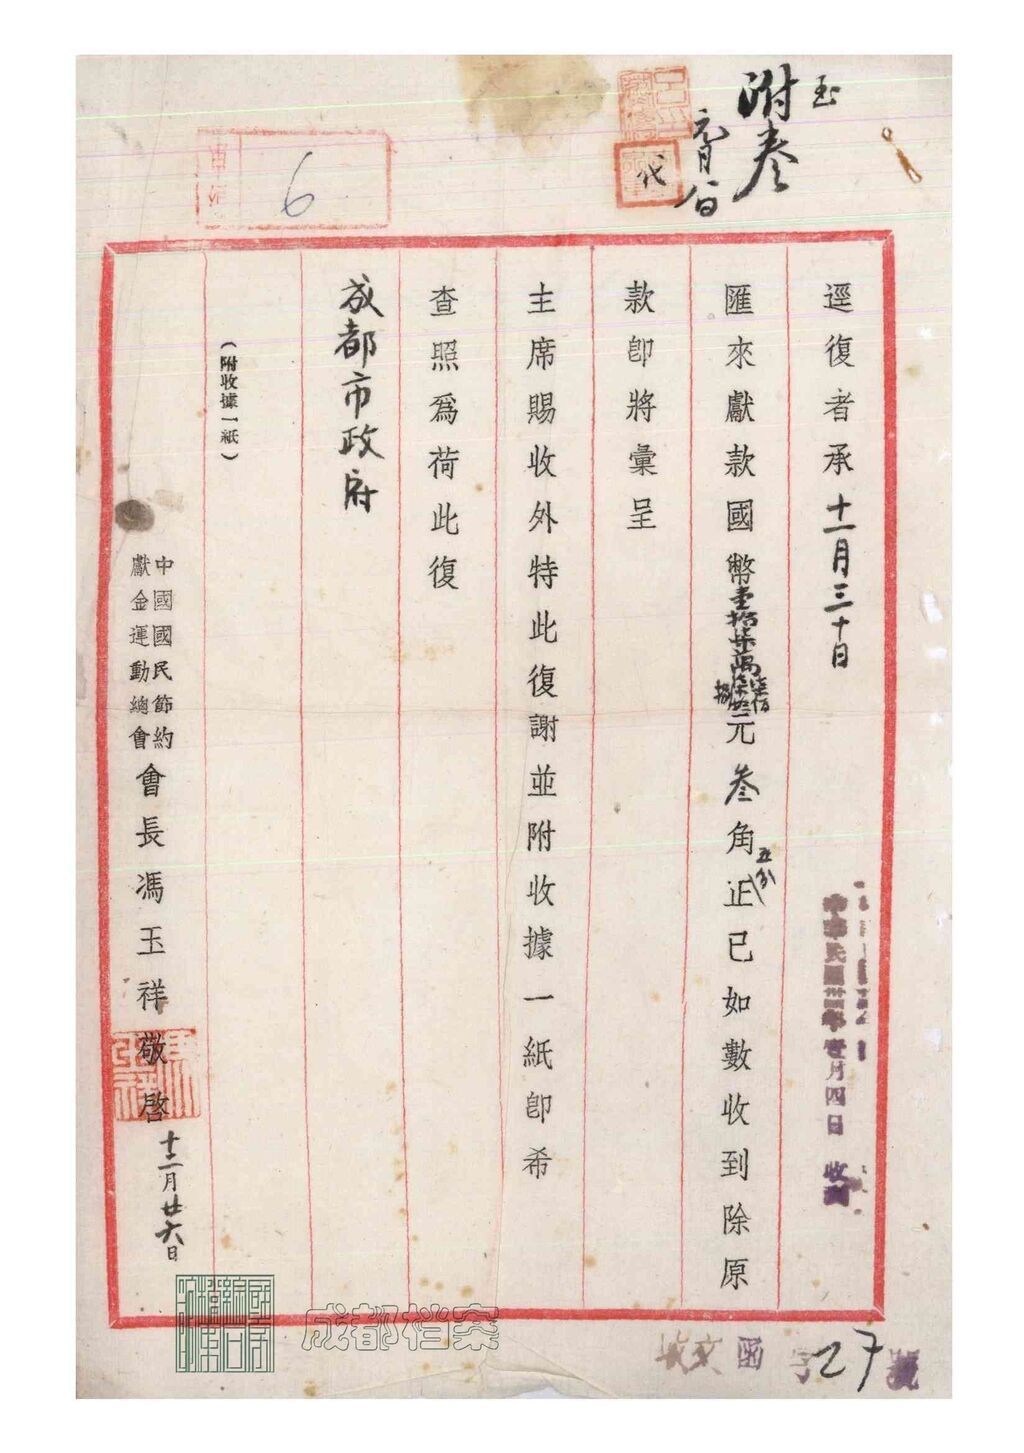 附叁
元月八日
代
6
逕復者承十一月三十日
匯來獻款國幣壹拾柒萬柒仟柒佰捌拾元叁角五分正已如數收到除原
款卽將彙呈
主席賜收外特此復謝並附收據一紙卽希
查照爲荷此復
成都市政府
（附收據一紙）
中國國民節約
獻金運動總會
會長馮玉祥敬啓
十二月廿六日
中華民國卅四年壹月四日收到
收文函字27號
成都档案